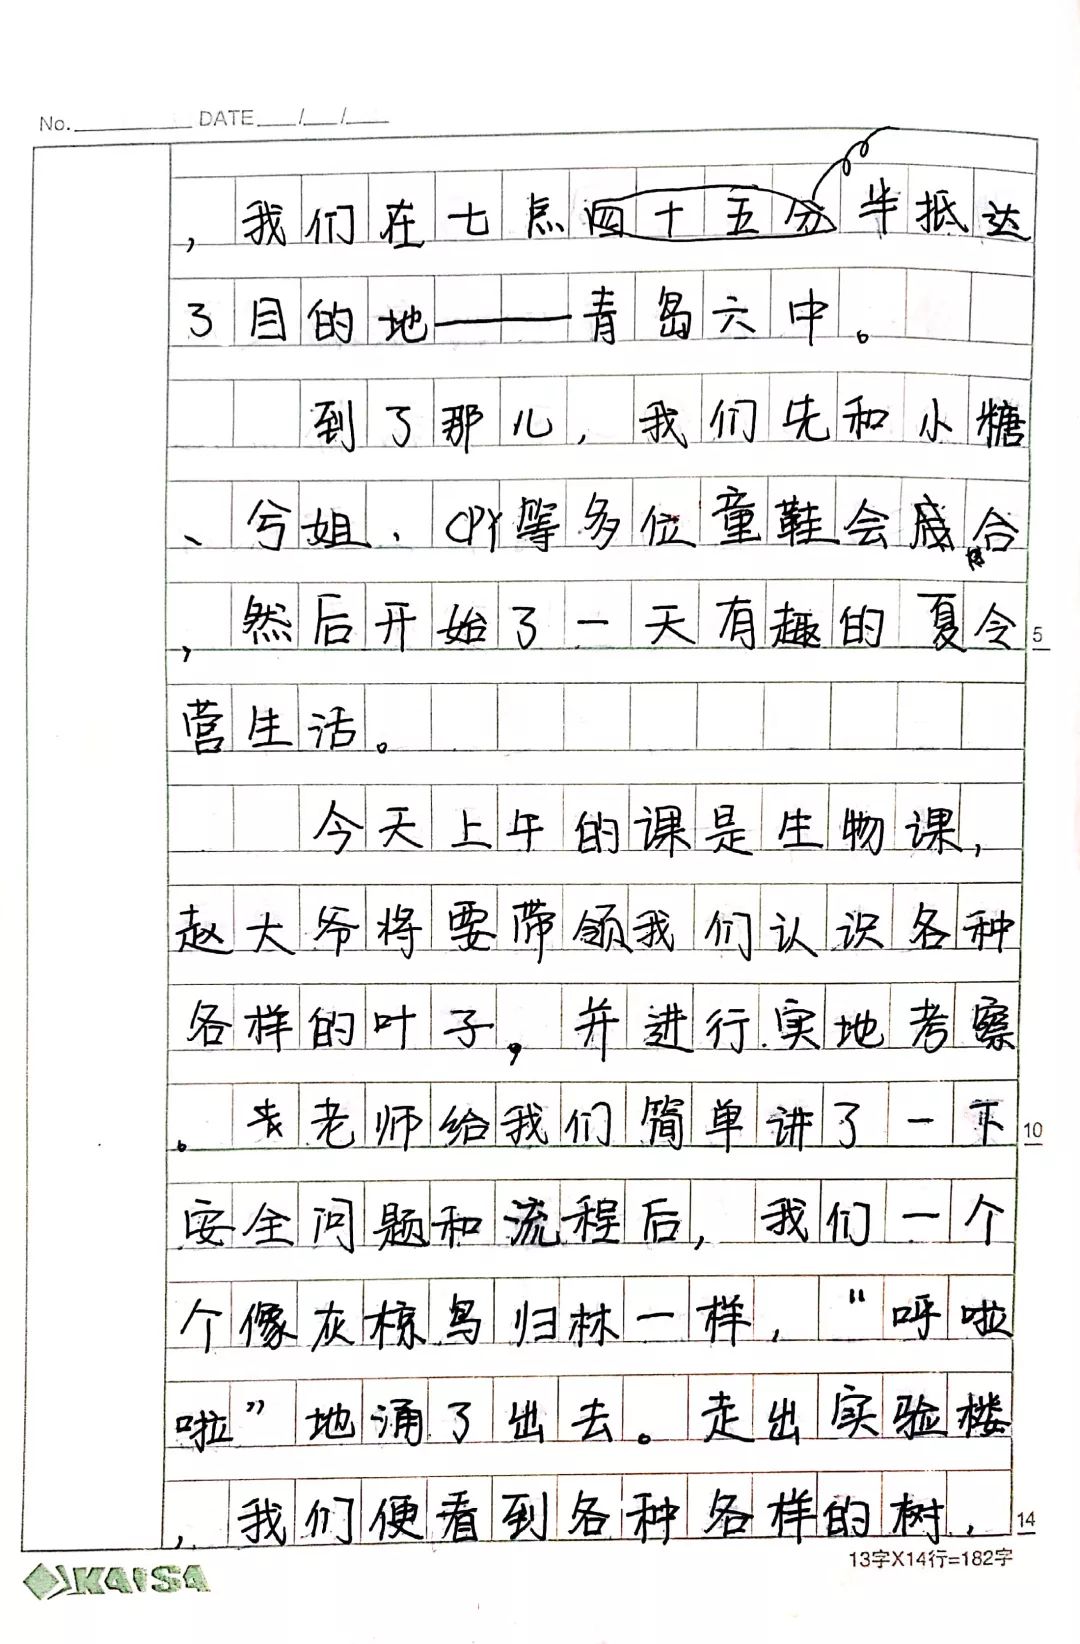 No. DATE / /
，我们在七点四十五分半抵达
了目的地——青岛六中。
到了那儿，我们先和小糖
、兮姐、CPY等多位童鞋会成合
，然后开始了一天有趣的夏令
营生活。
今天上午的课是生物课，
赵大爷将要带领我们认识各种
各样的叶子，并进行实地考察
。老师给我们简单讲了一下
安全问题和流程后，我们一个
个像灰椋鸟归林一样，“呼啦
啦”地涌了出去。走出实验楼
，我们便看到各种各样的树，
5
10
14
KAISA
13字X14行=182字